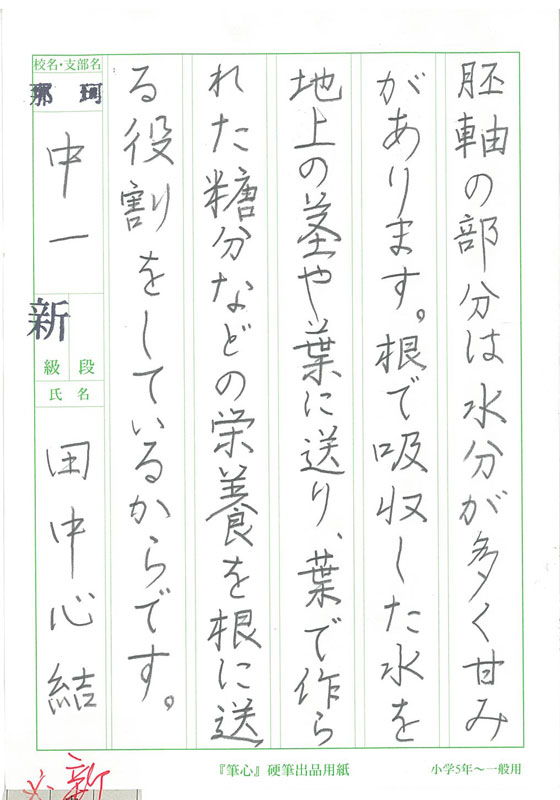 胚軸の部分は水分が多く甘み
があります。根で吸収した水を
地上の茎や葉に送り、葉で作ら
れた糖分などの栄養を根に送
る役割をしているからです。
校名・支部名
那珂
中一
新
級段
氏名
田中心結
『筆心』硬筆出品用紙
小学5年〜一般用
新